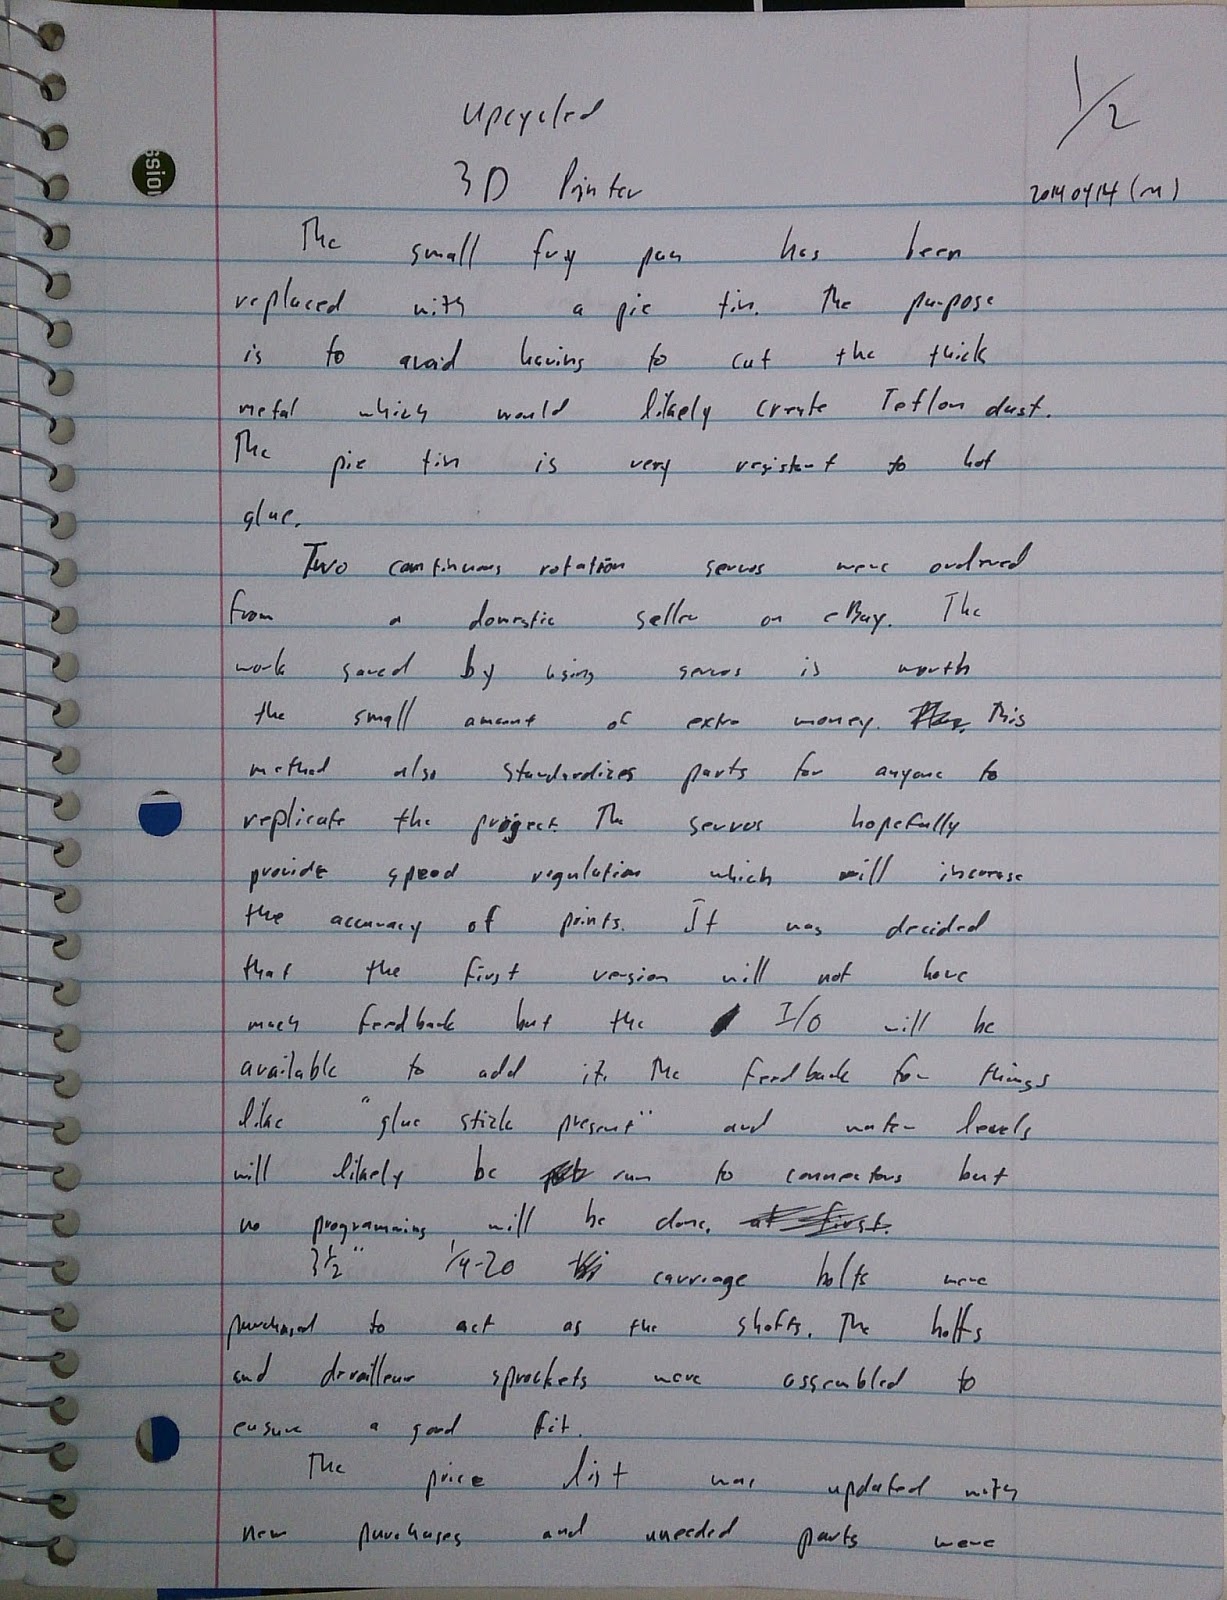 Upcycled
1/2
3D Printer
20140414 (M)
The small fry pan has been
replaced with a pie tin. The purpose
is to avoid having to cut the thick
metal which would likely create Teflon dust.
The pie tin is very resistant to hot
glue.
Two continuous rotation servos were ordered
from a domestic seller on eBay. The
work saved by using servos is worth
the small amount of extra money. This
method also standardizes parts for anyone to
replicate the project. The servos hopefully
provide speed regulation which will increase
the accuracy of points. It was decided
that the first version will not have
much feedback but the I/O will be
available to add it. The feedback for things
like "glue stick present" and water levels
will likely be run to connectors but
no programming will be done. at first.
3 1/2" 1/4-20 carriage bolts were
purchased to act as the shafts. The bolts
and derailleur sprockets were assembled to
ensure a good fit.
The price list was updated with
new purchases and uneeded parts were